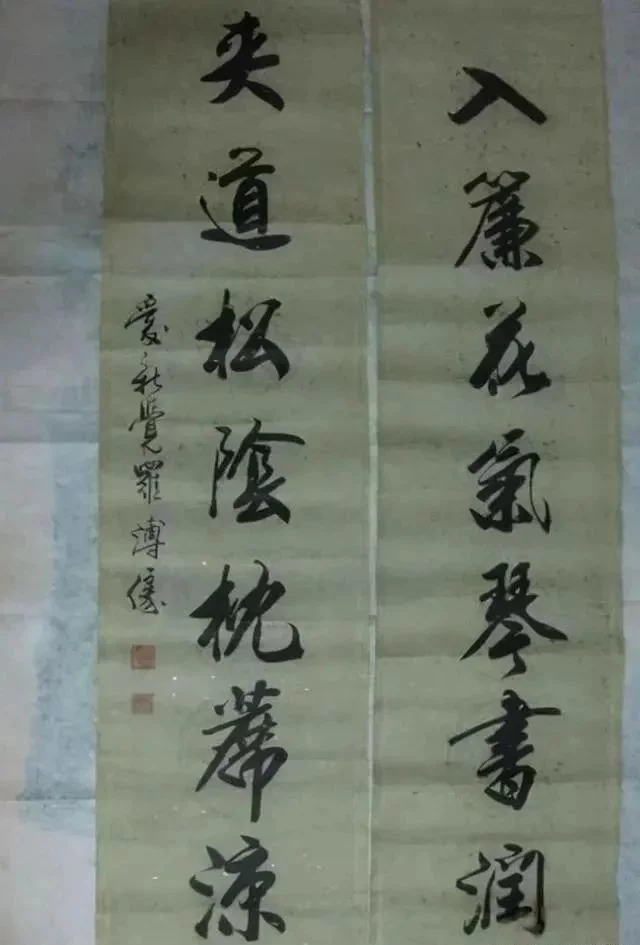 入簾花氣琴書潤
夾道松陰枕蓆涼
愛新覺羅溥